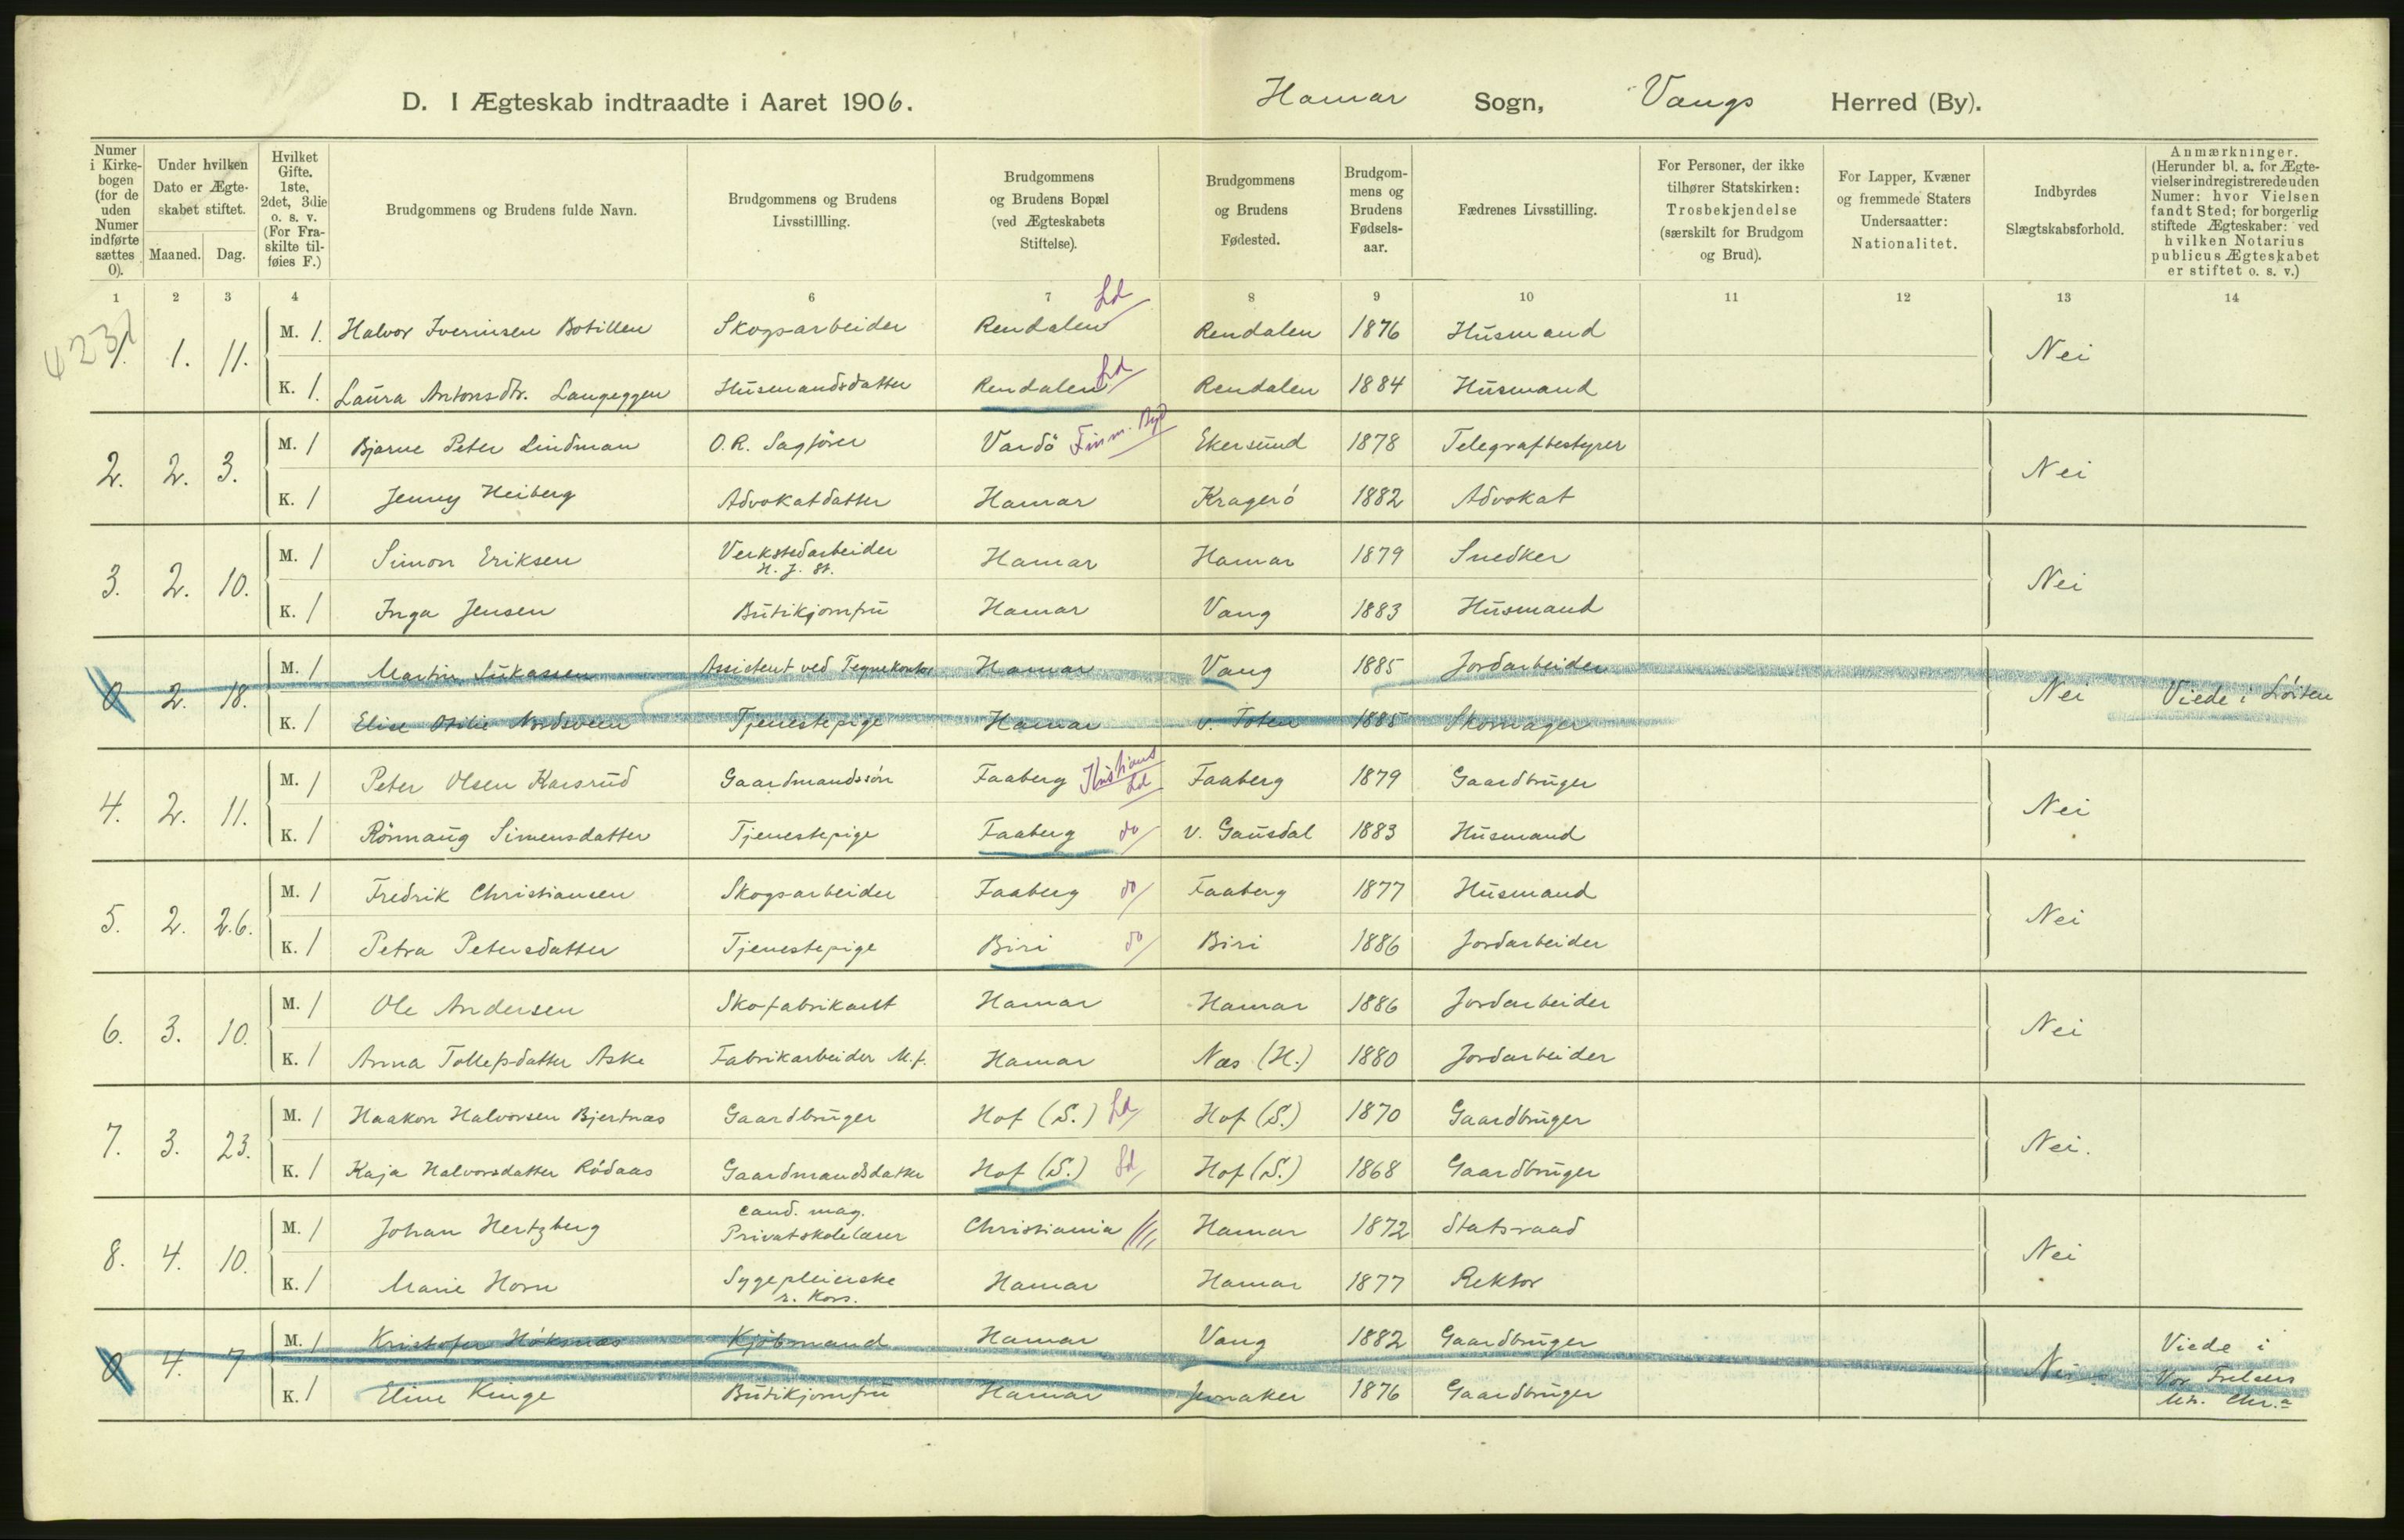 D. I Ægteskab indtraadte i Aaret 1906. Hamar Sogn, Vangs Herred (By).
Numer i Kirkebogen (for de uden Numer indførte sættes 0).
Under hvilken Dato er Ægteskabet stiftet.
Maaned. Dag.
Hvilket Gifte. 1ste, 2det, 3die o. s. v. (For Fraskilte tilføies F.)
Brudgommens og Brudens fulde Navn.
Brudgommens og Brudens Livsstillling.
Brudgommens og Brudens Bopæl (ved Ægteskabets Stiftelse).
Brudgommens og Brudens Fødested.
Brudgommens og Brudens Fødselsaar.
Fædrenes Livsstilling.
For Personer, der ikke tilhører Statskirken: Trosbekjendelse (særskilt for Brudgom og Brud).
For Lapper, Kvæner og fremmede Staters Undersaatter: Nationalitet.
Indbyrdes Slægtskabsforhold.
Anmærkninger. (Herunder bl. a. for Ægtevielser indregistrerede uden Numer: hvor Vielsen fandt Sted; for borgerlig stiftede Ægteskaber: ved hvilken Notarius publicus Ægteskabet er stiftet o. s. v.)
1 2 3 4 6 7 8 9 10 11 12 13 14
423
1. 1. 11. M. 1. Halvor Iverinsen Botillen Skogsarbeider Rendalen Ld Rendalen 1876 Husmand Nei
K. 1. Laura Antonsdtr. Langeggen Husmandsdatter Rendalen Ld Rendalen 1884 Husmand
2. 2. 3. M. 1 Bjarne Peter Lindman O.R. Sagfører Vardö Finm. Byd Ekersund 1878 Telegrafbestyrer Nei
K. 1 Jenny Heiberg Advokatdatter Hamar Kragerö 1882 Advokat
3. 2. 10. M. 1 Simon Eriksen Verkstedarbeider H. J. St. Hamar Hamar 1879 Snedker Nei
K. 1 Inga Jensen Butikjomfru Hamar Vang 1883 Husmand
0 2. 18. M. 1 Martin Lukassen Assistent ved Tegnekontor Hamar Vang 1885 Jordarbeider Nei Viede i Löiten
K. 1 Elise Otilie Nordsveen Tjenestepige Hamar V. Toten 1885 Skomager
4. 2. 11. M. 1 Peter Olsen Karsrud Gaardmandssön Faaberg Kristians Ld Faaberg 1879 Gaardbruger Nei
K. 1 Rönnaug Simensdatter Tjenestepige Faaberg do V. Gausdal 1883 Husmand
5. 2. 26. M. 1 Fredrik Christiansen Skogsarbeider Faaberg do Faaberg 1877 Husmand Nei
K. 1 Petra Petersdatter Tjenestepige Biri do Biri 1886 Jordarbeider
6. 3. 10. M. 1 Ole Andersen Skofabrikant Hamar Hamar 1886 Jordarbeider Nei
K. 1 Anna Tollefsdatter Aske Fabrikarbeider M.f. Hamar Næs (H.) 1880 Jordarbeider
7. 3. 23. M. 1 Haakon Halvorsen Bjertnæs Gaardbruger Hof (S.) Ld Hof (S.) 1870 Gaardbruger Nei.
K. 1 Kaja Halvorsdatter Rödaas Gaardmandsdatter Hof (S.) Ld Hof (S.) 1868 Gaardbruger
8. 4. 10. M. 1 Johan Hertzberg cand. mag. Privatskolelærer Christiania Hamar 1872 Statsraad Nei
K. 1 Marie Horn Sygepleierske r. Kors. Hamar Hamar 1877 Rektor
0 4. 7 M. 1 Kristofer Höksnæs Kjöbmand Hamar Vang 1882 Gaardbruger Nei Viede i
K. 1 Eline Kinge Butikjomfru Hamar Jevnaker 1876 Gaardbruger Vor Frelsers
Chr.a